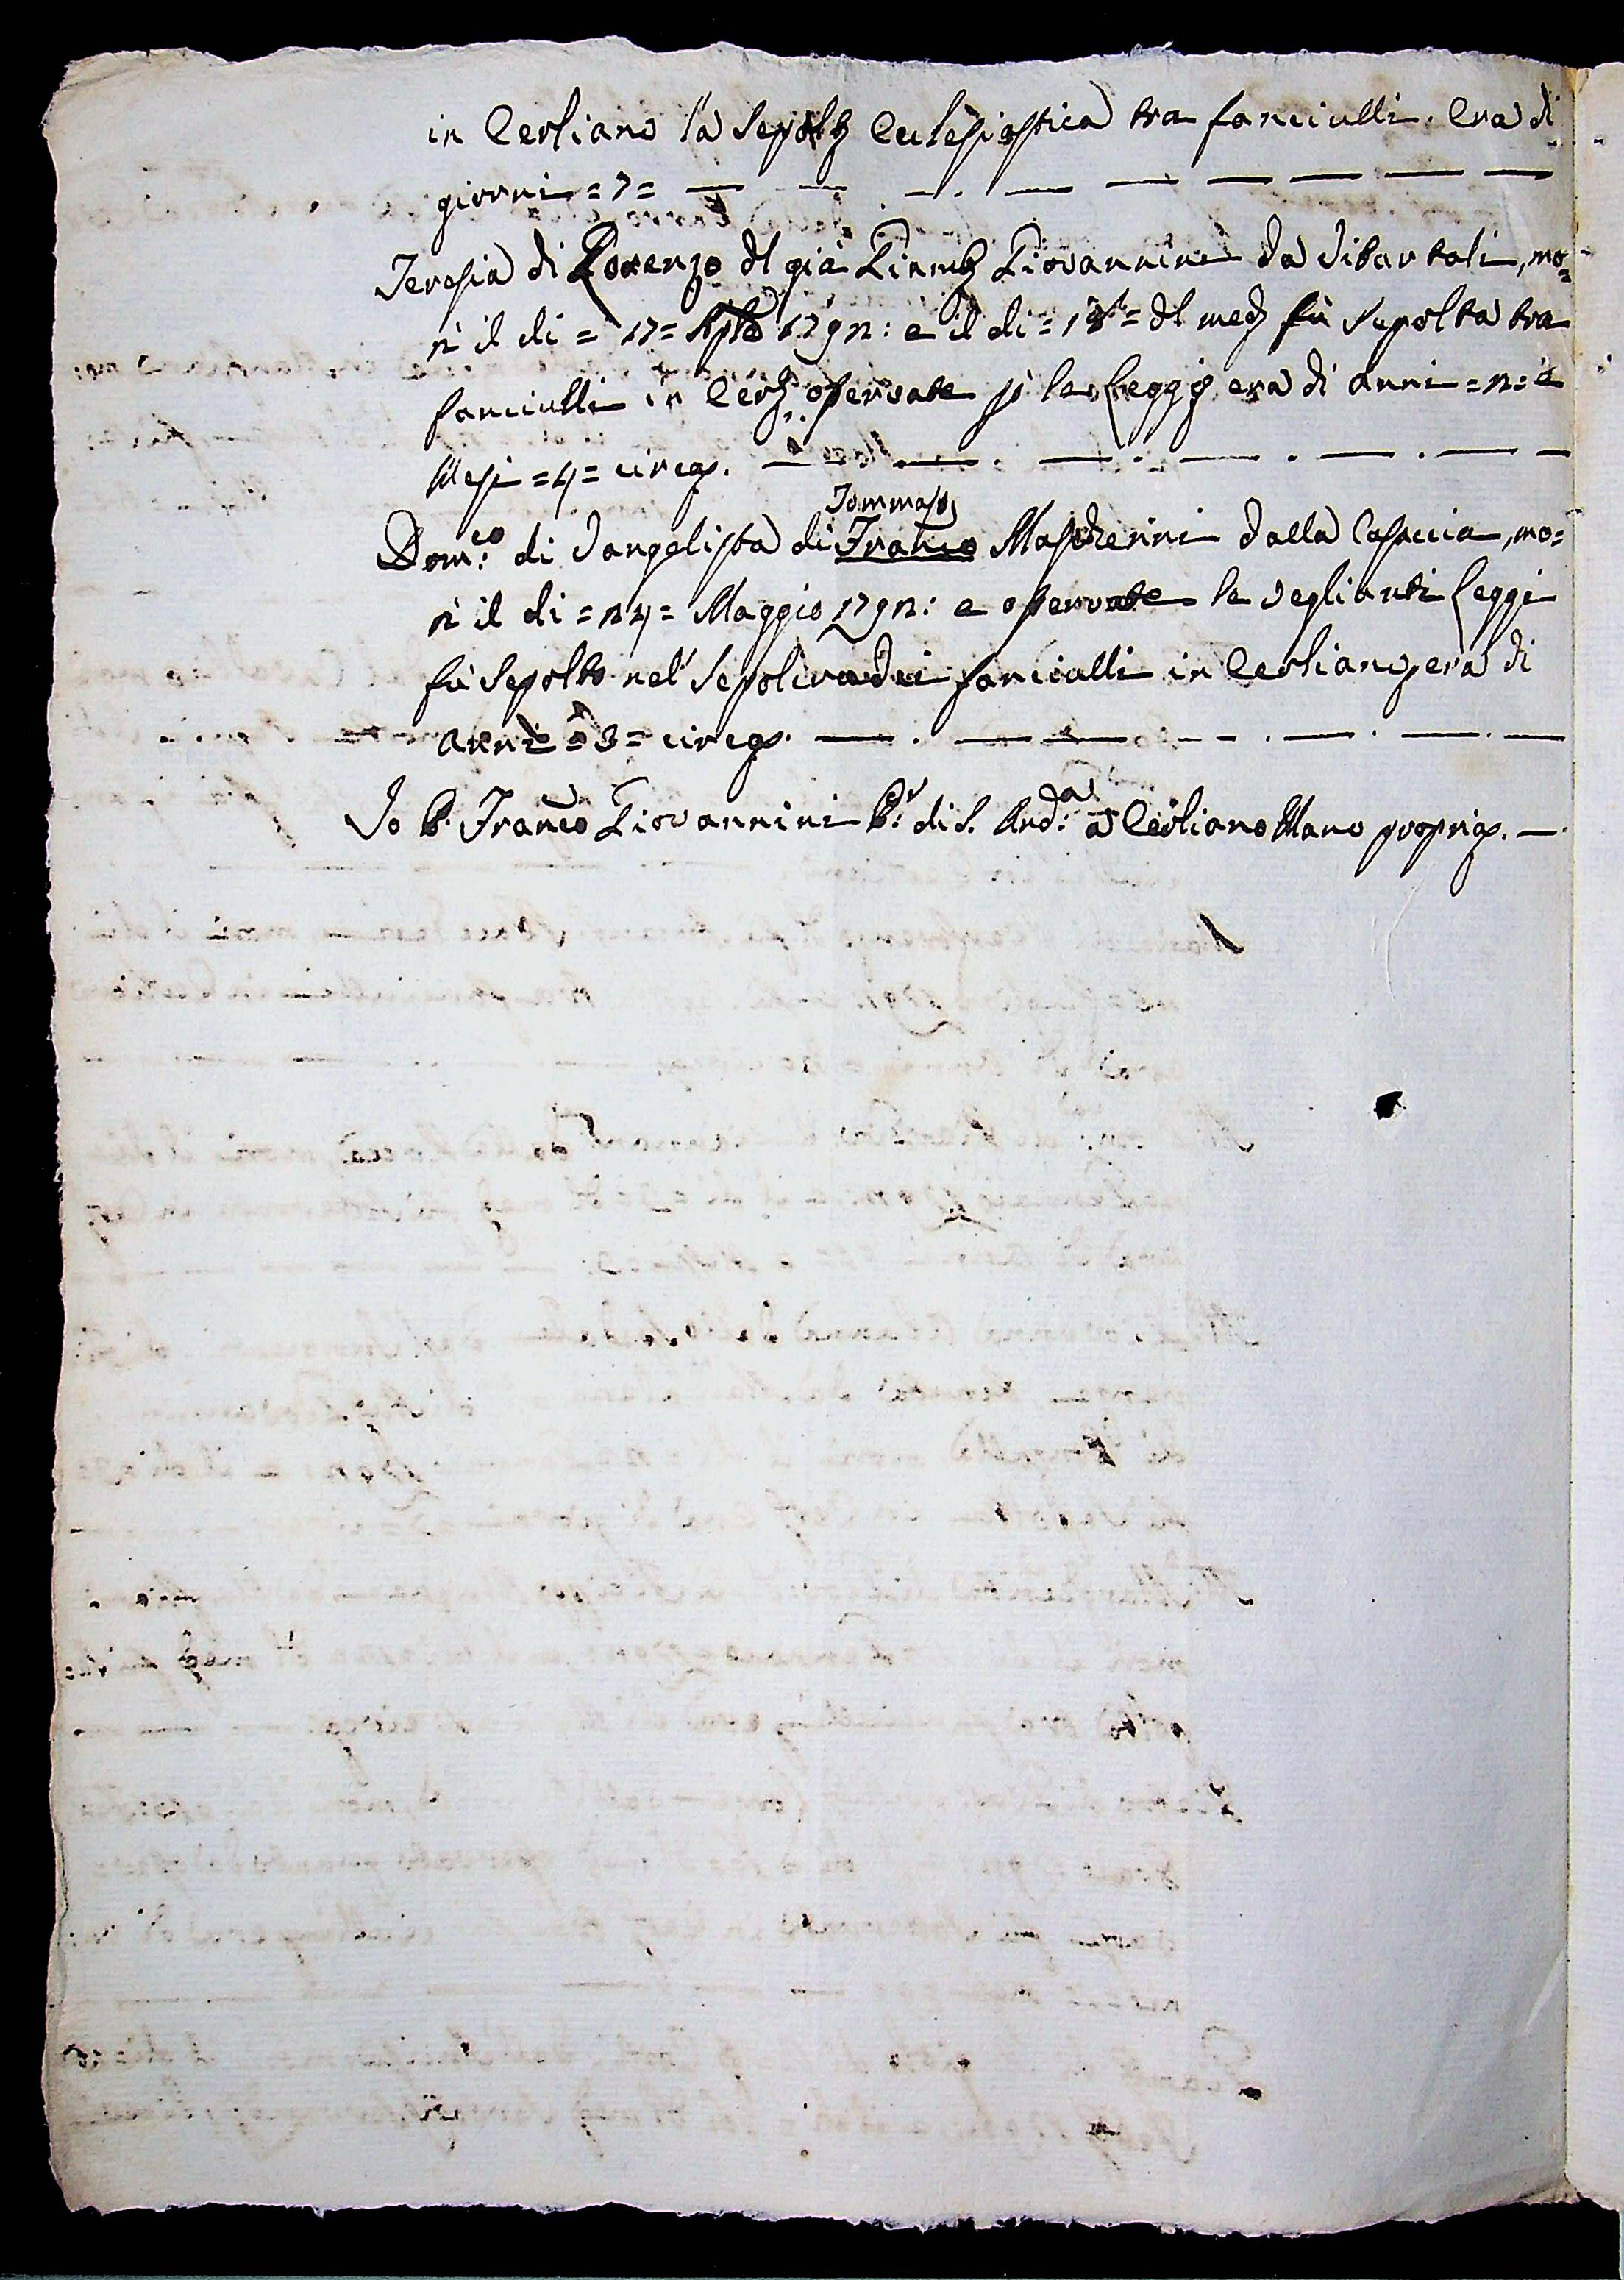 in Cerliano la Sepolt. Eccleſiaſtica tra fanciulli. Era di
giorni = 7 =
Tereſia di Lorenzo del già Giovannini da Tibartoli, mo=
rì il di = 17 = Sptē 1792: e il di = 18 = dl med. fù Sepolta tra
fanciulli in Cerl. oſservate le Leggi, era di anni = 2 = e
Meſi = 4 = circa.
Tommaſo
Dom:co di Vangeliſta di Franco Maſcherini dalla Caſaccia, mo=
rì il di = 24 = Maggio 1792: e oſservate le veglianti Leggi
fù Sepolto nel Sepolcro dei fanciulli in Cerliano, era di
anni = 3 = circa.
Io P. Franco Giovannini P:r di S. And:a a Cerliano Mano propria.